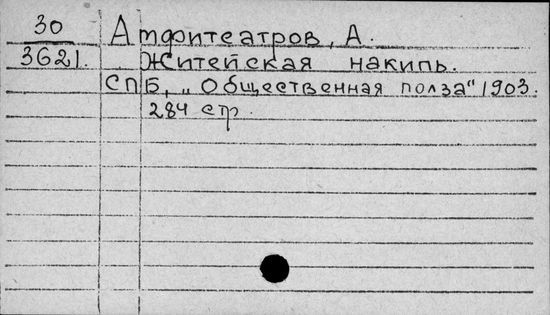 30 Амфитеатров, А.
3621. Житейская накипь.
СПБ, „Общественная полза" 1903.
284 стр.